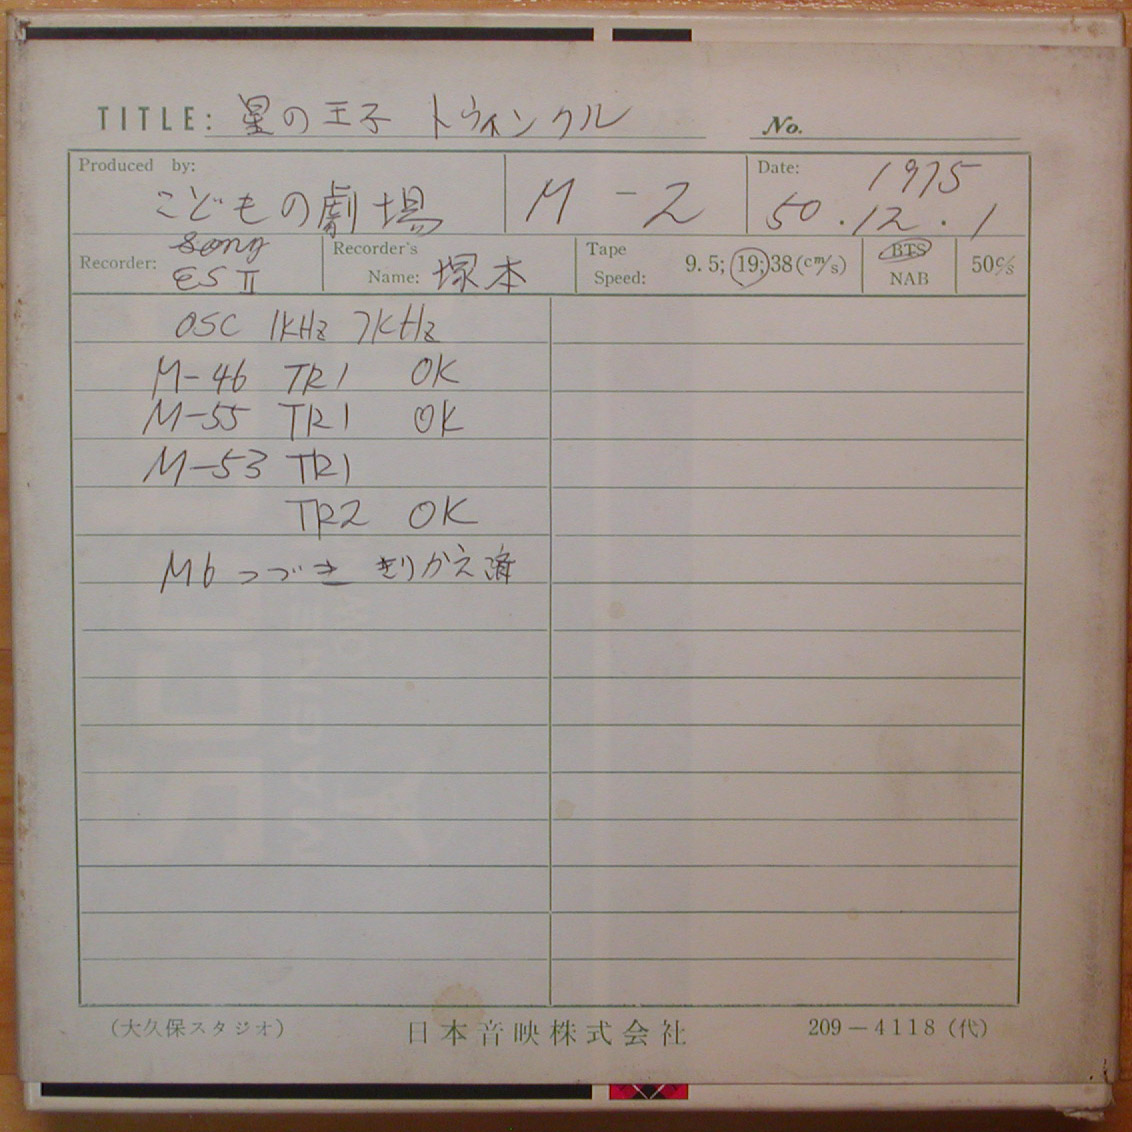 TITLE: 星の王子 トウィンクル No.
Produced by: こどもの劇場 M-2 Date: 1975 50.12.1
Recorder: song ESⅡ Recorder's Name: 塚本 Tape Speed: 9.5; 19; 38(cm/s) BTS NAB 50c/s
OSC 1KHz 7KHz
M-46 TR1 OK
M-55 TR1 OK
M-53 TR1
TR2 OK
M6 つづき きりかえ済
(大久保スタジオ) 日本音映株式会社 209-4118 (代)